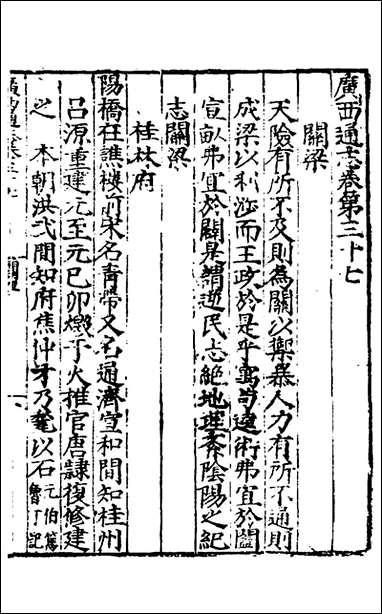 廣西通志卷第三十七
關梁
天險有所不及則為關以禦暴人力有所不通則
成梁以利涉而王政於是乎寓焉違術弗宜於闗
宣畝弗宜於關是謂逆民志絶地理奔陰陽之紀
志關梁
桂林府
陽橋在譙樓前宋名青帶又名通濟宣和間知桂州
吕源重建元至元己卯燬于火推官唐隷復修建
之　本朝洪武間知府焦仲才乃甃以石元伯篤魯丁記